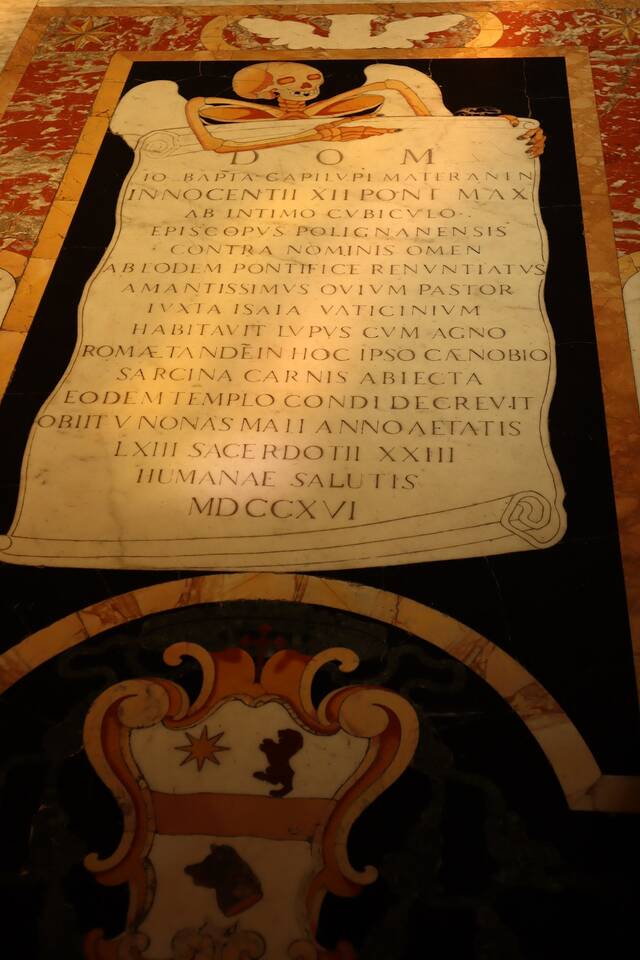 D O M
IO BAPTA CAPILUPI MATERANEN
INNOCENTII XII PONT MAX
AB INTIMO CVBICVLO
EPISCOPVS POLIGNANENSIS
CONTRA NOMINIS OMEN
AB EODEM PONTIFICE RENVNTIATVS
AMANTISSIMVS OVIVM PASTOR
IVXTA ISAIA VATICINIVM
HABITAVIT LVPVS CVM AGNO
ROMÆ TANDẼ IN HOC IPSO CÆNOBIO
SARCINA CARNIS ABIECTA
EODEM TEMPLO CONDI DECREVIT
OBIIT V NONAS MAII ANNO AETATIS
LXIII SACERDOTII XXIII
HUMANAE SALUTIS
MDCCXVI